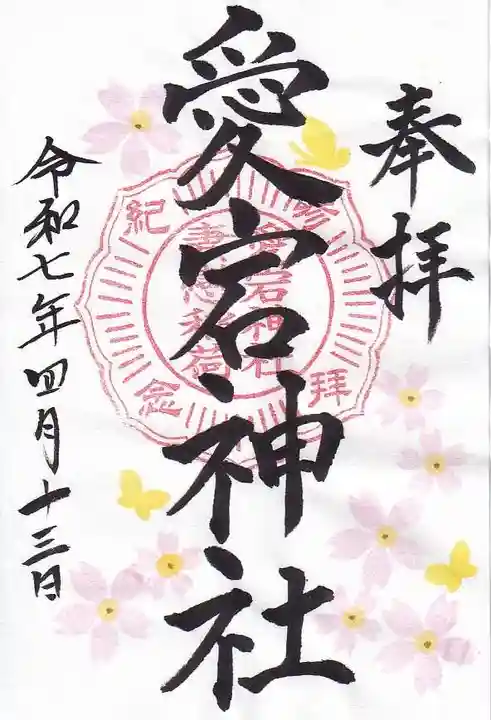 奉拝
愛宕神社
令和七年四月十三日
参拝
紀念
愛宕神社